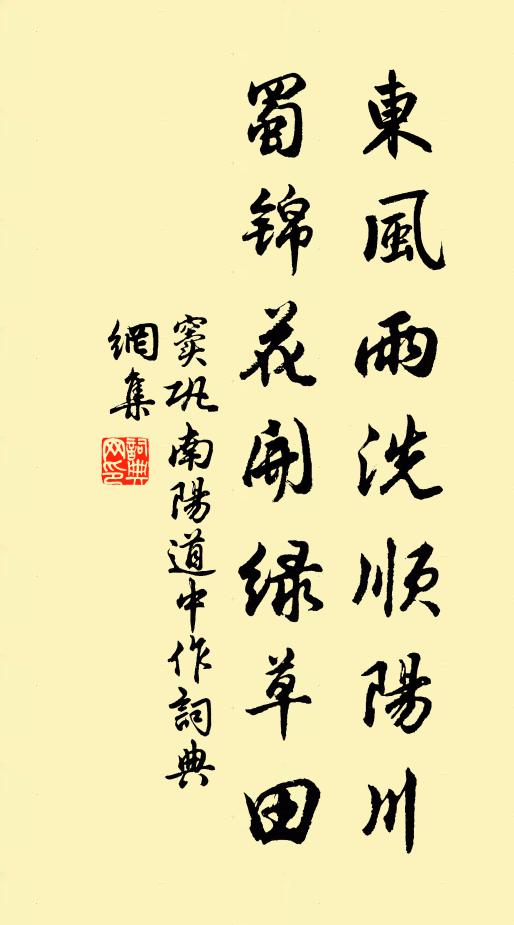 東風雨洗順陽川
蜀锦花開绿草田
竇巩南陽道中作詞典
網集
詞典
网印